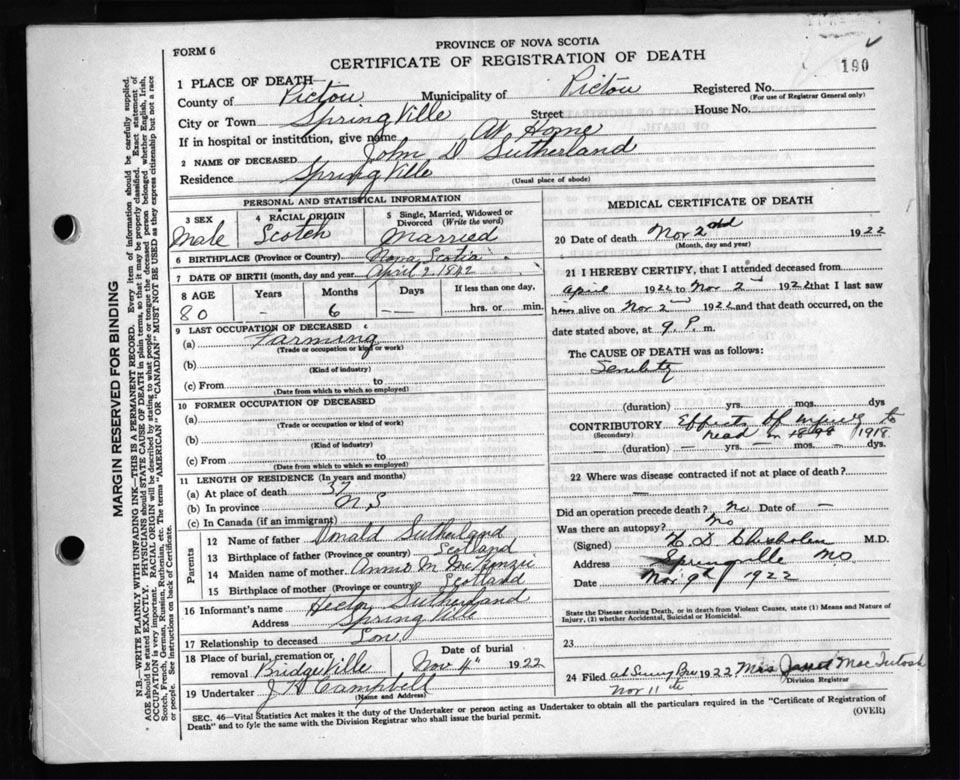 FORM 6
PROVINCE OF NOVA SCOTIA
CERTIFICATE OF REGISTRATION OF DEATH
190
1 PLACE OF DEATH—
County of Pictou Municipality of Pictou Registered No.
(For use of Registrar General only)
City or Town SpringVille Street House No.
If in hospital or institution, give name At Home
2 NAME OF DECEASED John D Sutherland
Residence SpringVille
(Usual place of abode)
PERSONAL AND STATISTICAL INFORMATION
3 SEX Male
4 RACIAL ORIGIN Scotch
5 Single, Married, Widowed or Divorced (Write the word) Married
6 BIRTHPLACE (Province or Country) Nova Scotia
7 DATE OF BIRTH (month, day and year) April 2 1842
8 AGE Years Months Days If less than one day,
80 - 6 -- hrs. or min.
9 LAST OCCUPATION OF DECEASED
(a) Farming
(Trade or occupation or kind of work)
(b)
(Kind of industry)
(c) From to
(Date from which to which so employed)
10 FORMER OCCUPATION OF DECEASED
(a)
(Trade or occupation or kind of work)
(b)
(Kind of industry)
(c) From to
(Date from which to which so employed)
11 LENGTH OF RESIDENCE (In years and months)
(a) At place of death 37
(b) In province N.S
(c) In Canada (if an immigrant)
Parents
12 Name of father Donald Sutherland
13 Birthplace of father (Province or country) Scotland
14 Maiden name of mother Annie M McKenzie
15 Birthplace of mother (Province or country) Scotland
16 Informant's name Hector Sutherland
Address SpringVille
17 Relationship to deceased Son
18 Place of burial, cremation or removal BridgeVille
Date of burial Nov 4th 1922
19 Undertaker J Campbell
(Name and Address)
MEDICAL CERTIFICATE OF DEATH
20 Date of death Nov 2nd 1922
(Month, day and year)
21 I HEREBY CERTIFY, that I attended deceased from
April 1922 to Nov 2 1922 that I last saw
him alive on Nov 2 1922 and that death occurred, on
date stated above, at 9 P. m.
The CAUSE OF DEATH was as follows:
Senility
(duration) yrs. mos. dys
CONTRIBUTORY Effects of injury to
(Secondary) head in 1898 1918
— (duration) yrs. — mos. dys.
22 Where was disease contracted if not at place of death?
—
Did an operation precede death? No Date of —
Was there an autopsy? No
(Signed) Chisholm M.D.
Address Springville NS
Date Nov. 9th 1922
State the Disease causing Death, or in death from Violent Causes, state (1) Means and Nature of
Injury, (2) whether Accidental, Suicidal or Homicidal.
23
24 Filed at Sunny Brae 1922 Mrs MacIntosh
Nov 11th Division Registrar
SEC. 46—Vital Statistics Act makes it the duty of the Undertaker or person acting as Undertaker to obtain all the particulars required in the "Certificate of Registration of
Death" and to fyle the same with the Division Registrar who shall issue the burial permit.
(OVER)
MARGIN RESERVED FOR BINDING
N.B.—WRITE PLAINLY WITH UNFADING INK—THIS IS A PERMANENT RECORD. Every item of information should be carefully supplied.
AGE should be stated EXACTLY. PHYSICIANS should STATE CAUSE OF DEATH in plain terms, so that it may be properly classified. Exact statement of
OCCUPATION is very important. RACIAL ORIGIN will be described by stating to what people or tongue the deceased person belonged whether English, Irish,
Scotch, French, German, Russian, Ruthenian, etc. The terms "AMERICAN" OR "CANADIAN" MUST NOT BE USED as they express citizenship but not a race
or people. See instructions on back of Certificate.